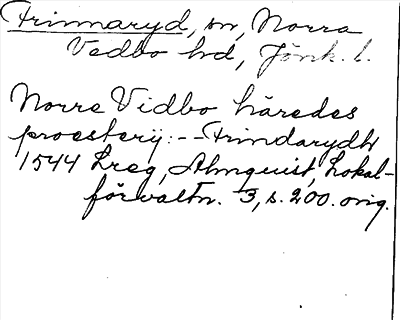 Frinnaryd, sn, Norra
Vedbo hd, Jönk. l.
Norre Vidbo häredes
proesterij: -- Frindarydh
1544 Lreg, Almquist, Lokal-
förvaltn. 3, s. 200. orig.